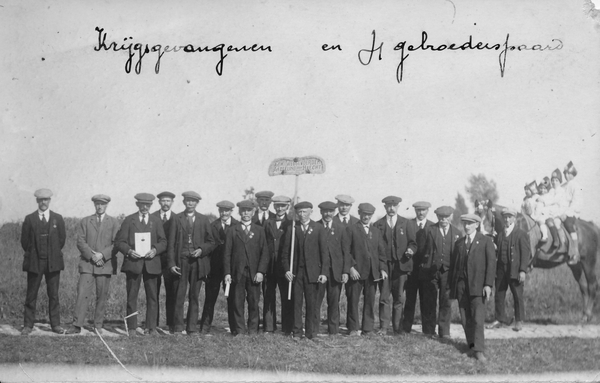 Krijgsgevangenen en 4 gebroederspaard